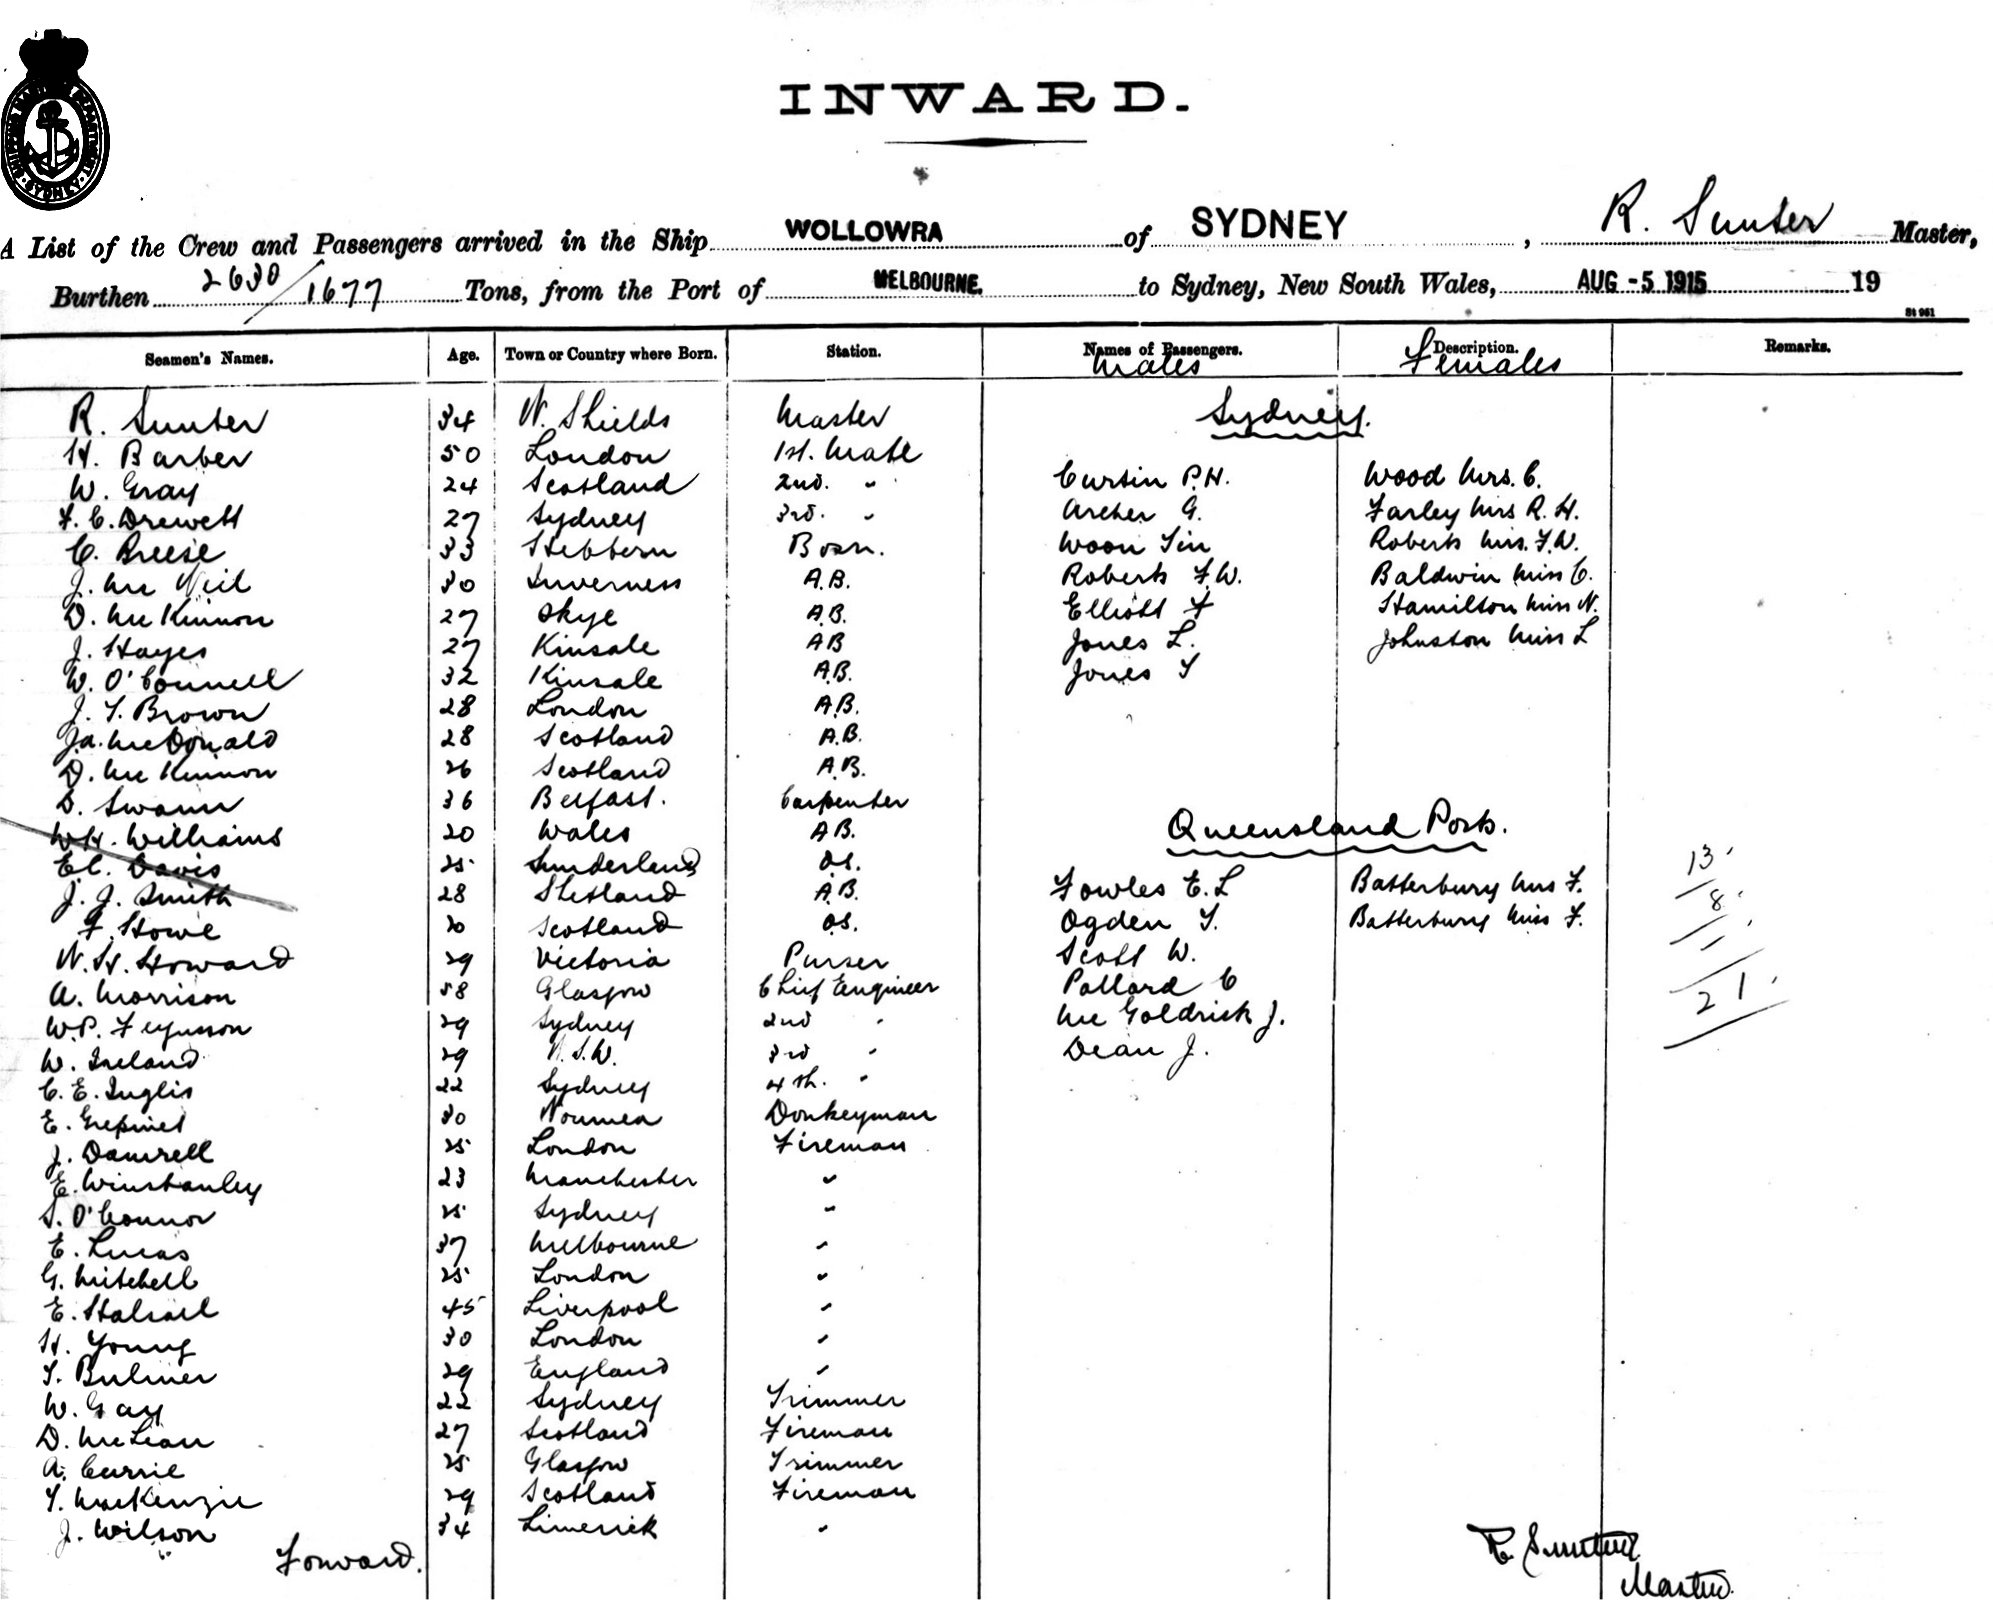 SHIPPING MASTER'S DEPARTMENT · SYDNEY ·
INWARD.
A List of the Crew and Passengers arrived in the Ship WOLLOWRA of SYDNEY, R. Sunter Master,
Burthen 2630/1677 Tons, from the Port of MELBOURNE. to Sydney, New South Wales, AUG -5 1915 19
St 961
Seamen's Names. Age. Town or Country where Born. Station. Names of Passengers. Description. Remarks.
Males Females
R. Sunter 34 N. Shields Master Sydney.
H. Barber 50 London 1st. Mate
W. Gray 24 Scotland 2nd. " Curtin P.H. Wood Mrs. C.
F. C. Drewett 27 Sydney 3rd. " Archer G. Farley Mrs R. H.
C. Breese 33 Hebburn Bosn. Woon Tin Roberts Mrs. F.W.
J. Mc Neil 30 Inverness A.B. Roberts F.W. Baldwin Miss C.
D. Mc Kinnon 27 Skye A.B. Elliott F Hamilton Miss N.
J. Hayes 27 Kinsale AB Jones L. Johnston Miss L
W. O'Connell 32 Kinsale A.B. Jones T
J. T. Brown 28 London A.B.
Ja. McDonald 28 Scotland A.B.
D. Mc Kinnon 26 Scotland A.B.
D. Swann 36 Belfast. Carpenter
W.H. Williams 20 Wales A B. Queensland Ports.
E C. Davis 25 Sunderland O.S. 13.
J. J. Smith 28 Shetland A.B. Fowles E. L Batterbury Mrs F. 8.
F. Howe 20 Scotland O.S. Ogden T. Batterbury Miss F.
N. H. Howard 29 Victoria Purser Scott W.
A. Morrison 58 Glasgow Chief Engineer Pollard C 21.
W.P. Fergusson 29 Sydney 2nd " Mc Goldrick J.
W. Ireland 29 N.S.W. 3rd " Dean J.
C. E. Inglis 22 Sydney 4th. "
E. Grepinet 30 Noumea Donkeyman
J. Damrell 25 London Fireman
E. Winstanley 23 Manchester "
S. O'Connor 25 Sydney "
E. Lucas 37 Melbourne "
G. Mitchell 25 London "
E. Halsall 45 Liverpool "
H. Young 30 London "
T. Bulmer 29 England "
W. Gay 22 Sydney Trimmer
D. McLean 27 Scotland Fireman
A. Currie 25 Glasgow Trimmer
T. MacKenzie 29 Scotland Fireman
J. Wilson 34 Limerick "
Forward. R. Sunter
Master.